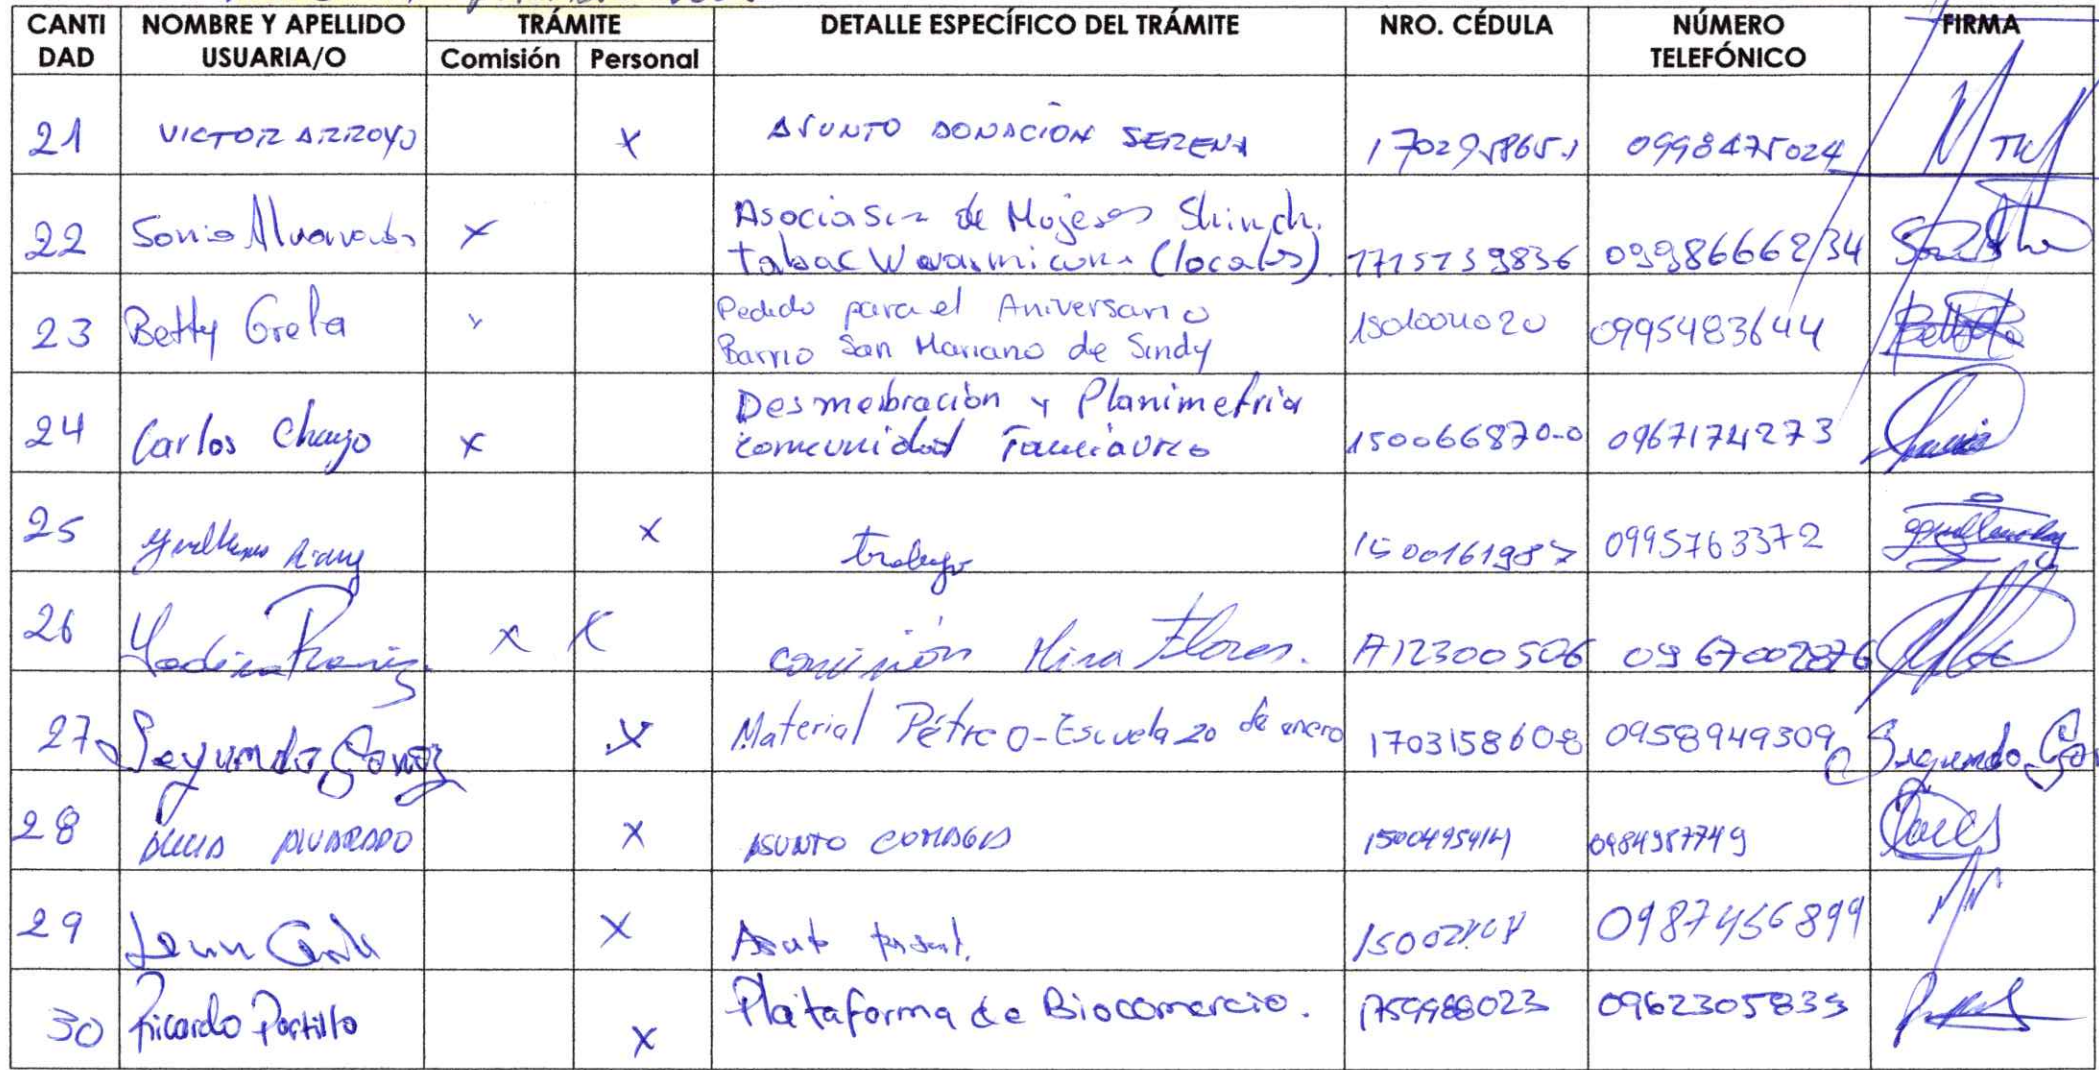 CANTI DAD | NOMBRE Y APELLIDO USUARIA/O | TRÁMITE | DETALLE ESPECÍFICO DEL TRÁMITE | NRO. CÉDULA | NÚMERO TELEFÓNICO | FIRMA
Comisión | Personal
21 VICTOR ARROYO X ASUNTO DONACIÓN SERENA 0998475024
22 Sonia Alvarado X Asociasin de Mujeres Shinch.
tabac Warmicuna (locales) 1715139836 0998666234
23 Betty Grefa x Pedido para el Aniversario
Barrio San Mariano de Sindy 1501004020 0995483644
24 Carlos Chango X Desmebración y Planimetria
comunidad 150066870-0 0967174273
25 X trabajo 1500161987 0995763372
26 X X comisión Mira Flores. A12300506 0967002876
27 Segundo Gomez X Material Pétreo-Escuela 20 de enero 1703158608 0958949309 Segundo Go
28 ALVARADO X ASUNTO 0984987749
29 X 0987456899
30 Ricardo Portillo X Plataforma de Biocomercio. 0962305835